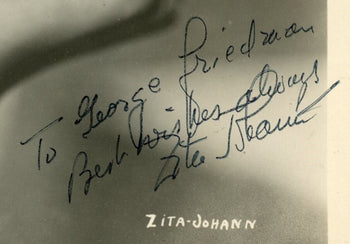 To George Friedman
Best wishes always
Zita Johann
ZITA-JOHANN